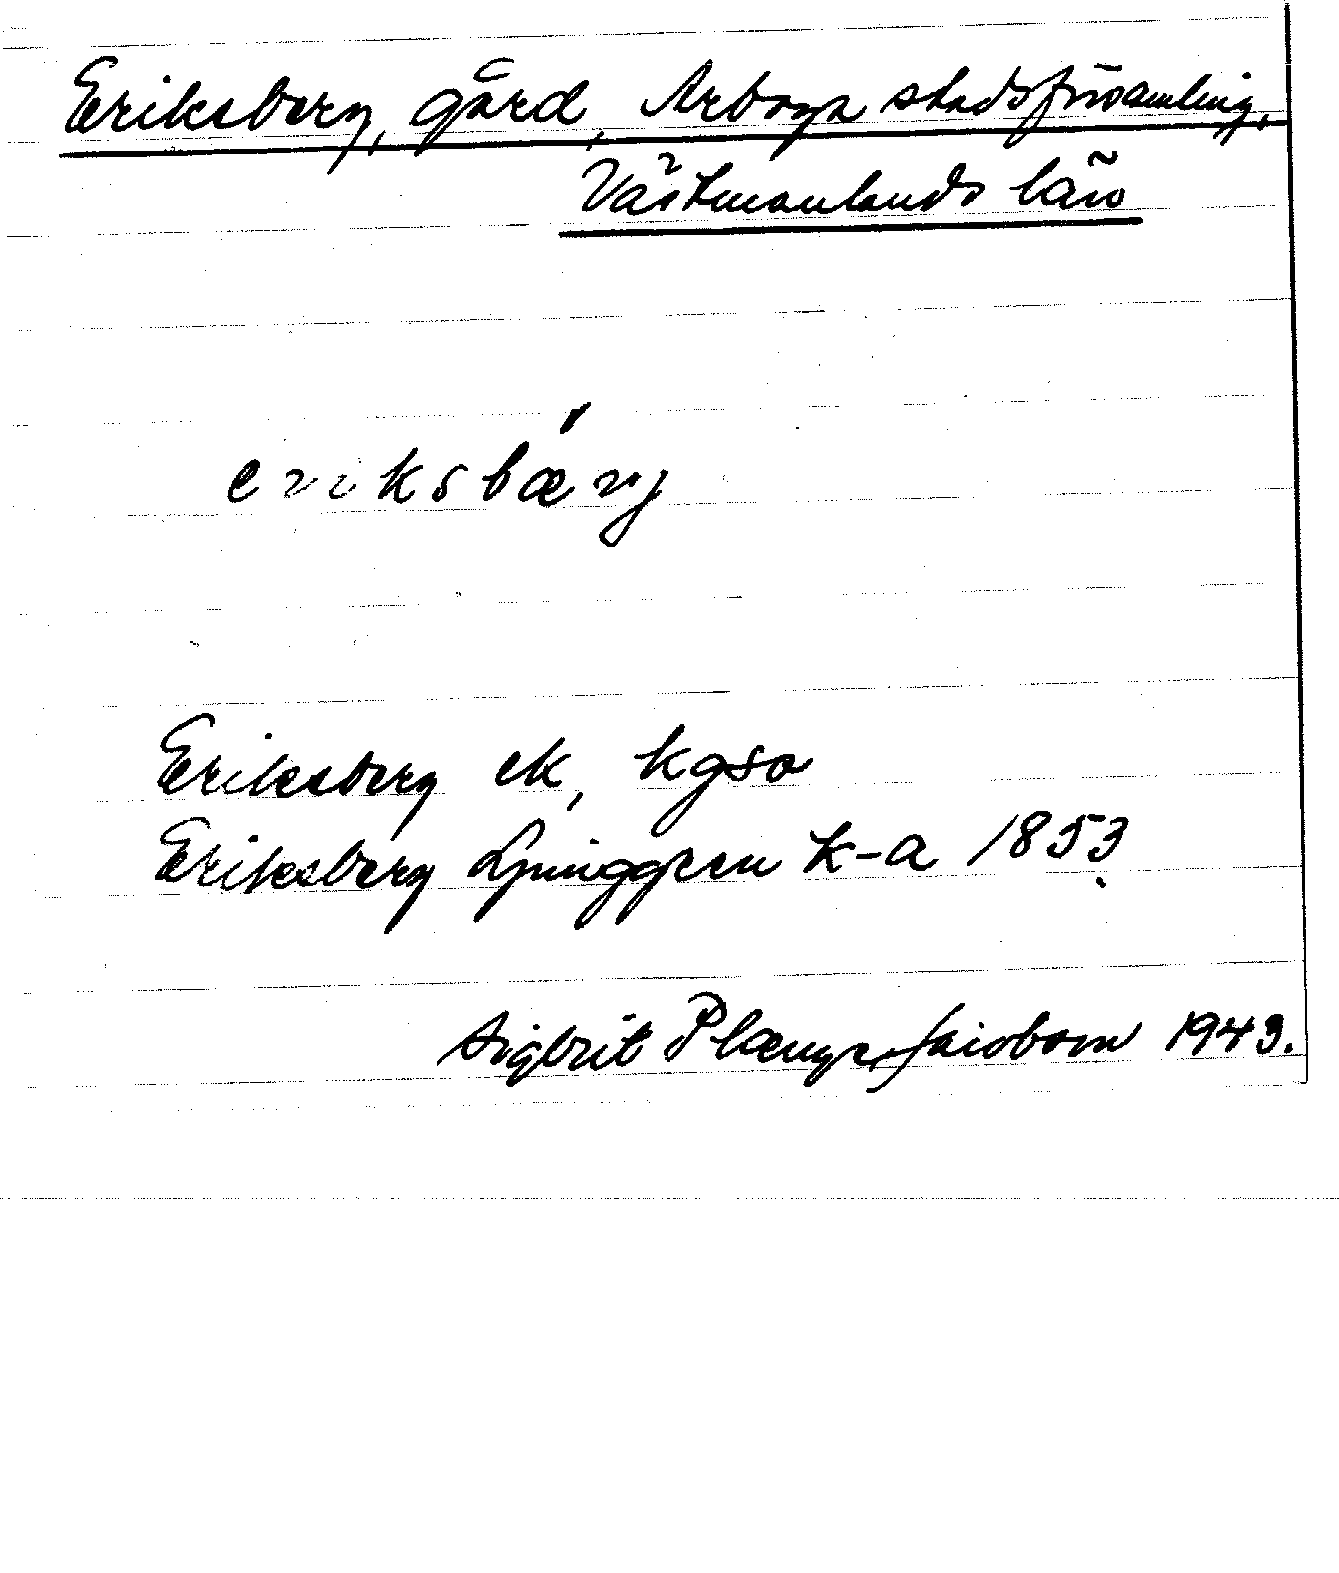 Eriksberg, gård, Arboga stadsförsamling,
Västmanlands län
eriksbæ´rj
Eriksberg ek, kgso
Eriksberg Ljunggren k-a 1853.
Sigbrit Plænge Jacobson 1943.